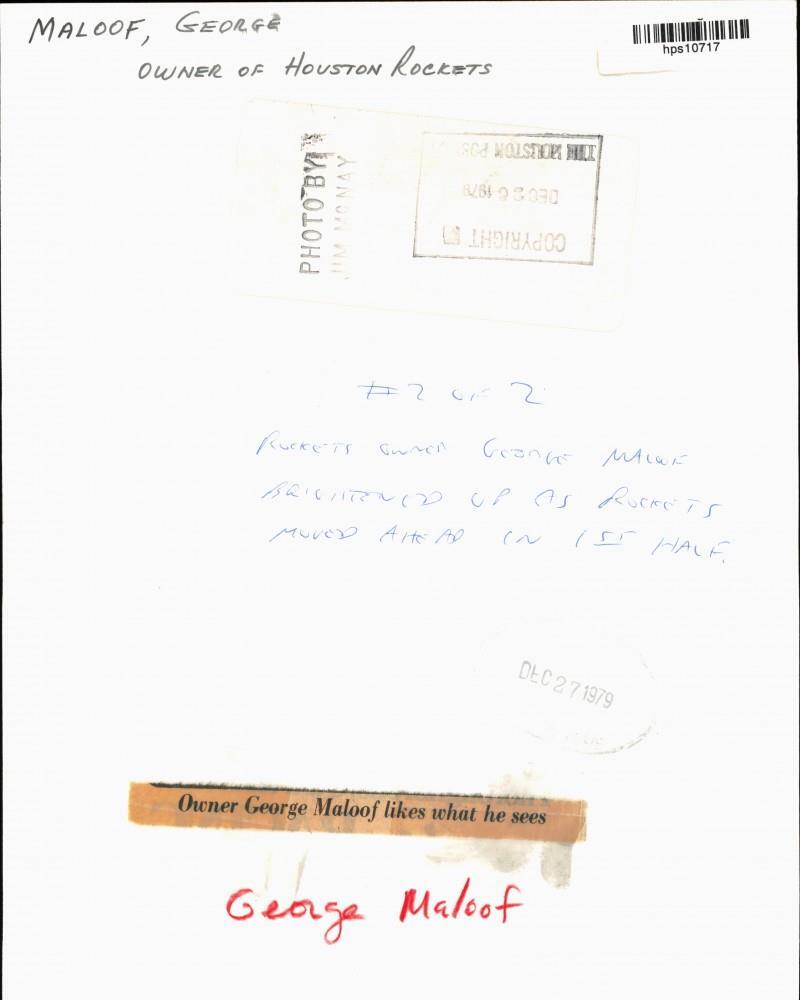 MALOOF, GEORGE
OWNER OF HOUSTON ROCKETS
hps10717
PHOTO BY
JIM McNAY
THE HOUSTON POST
DEC 26 1979
COPYRIGHT
#2 OF 2
ROCKETS OWNER GEORGE MALOOF
BRIGHTENED UP AS ROCKETS
MOVED AHEAD IN 1ST HALF.
DEC 27 1979
Owner George Maloof likes what he sees
George Maloof